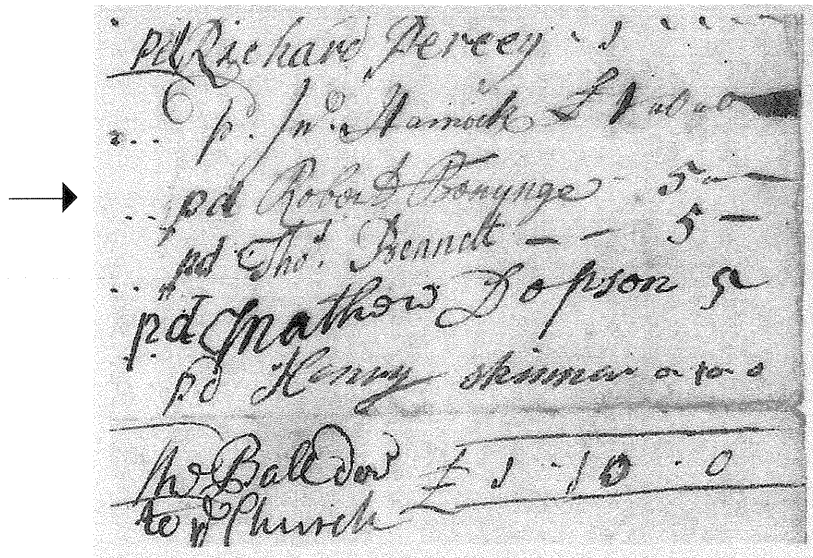 pd Richard Percey . 1
p. Jno. Hamock £ 1 - 0 - 0
pd Robert Bonynge - 5 -
pd Thos. Bennett - - 5 -
pd Mathew Dopson 5
pd Henry skinner
Balldor £ 1 - 10 - 0
to ye Church